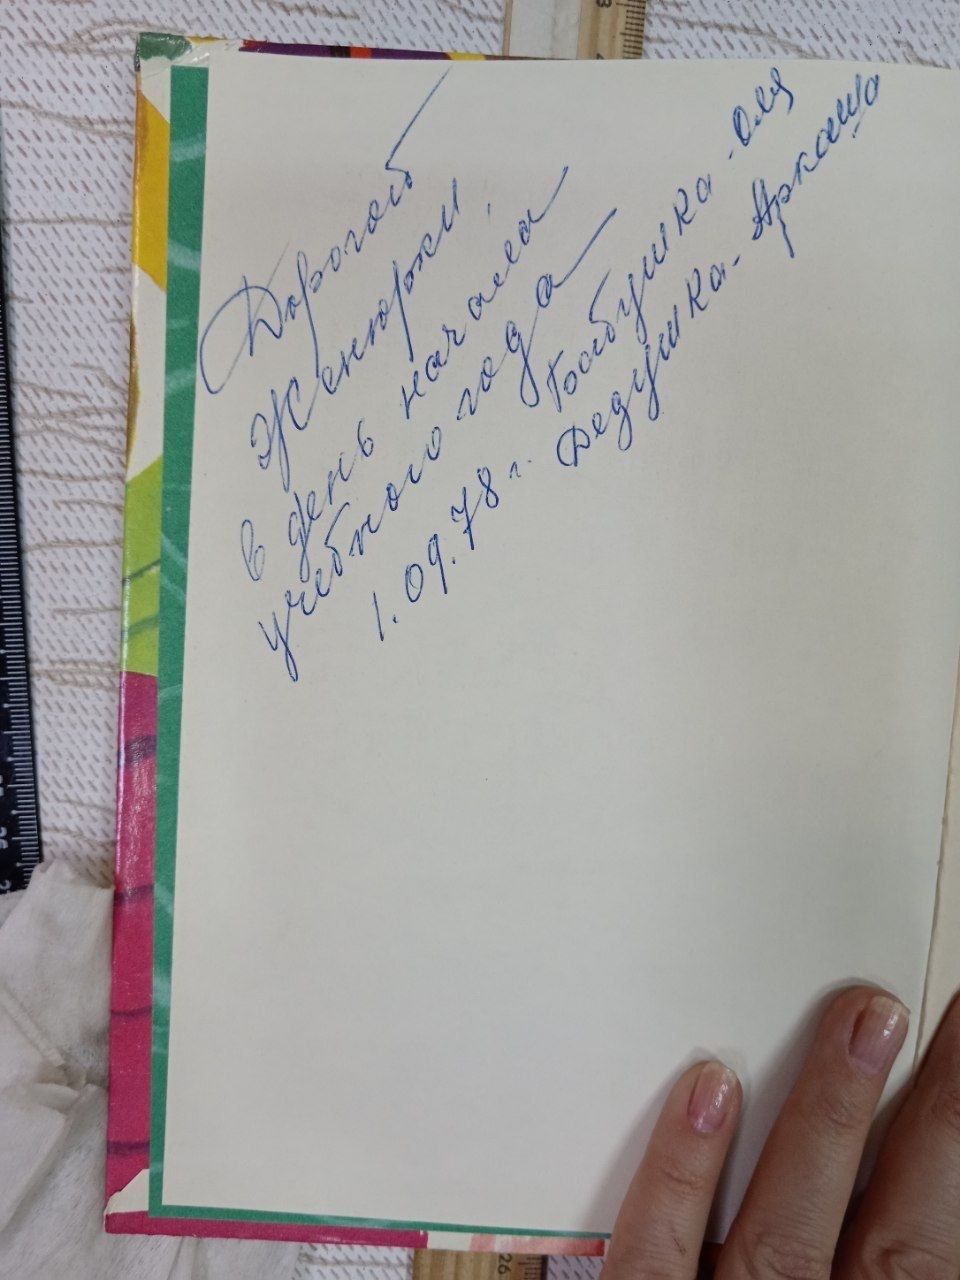 Дорогой
Женюрки,
в день начала
учебного года
1.09.78 г. Бабушка - Оля
Дедушка - Аркаша